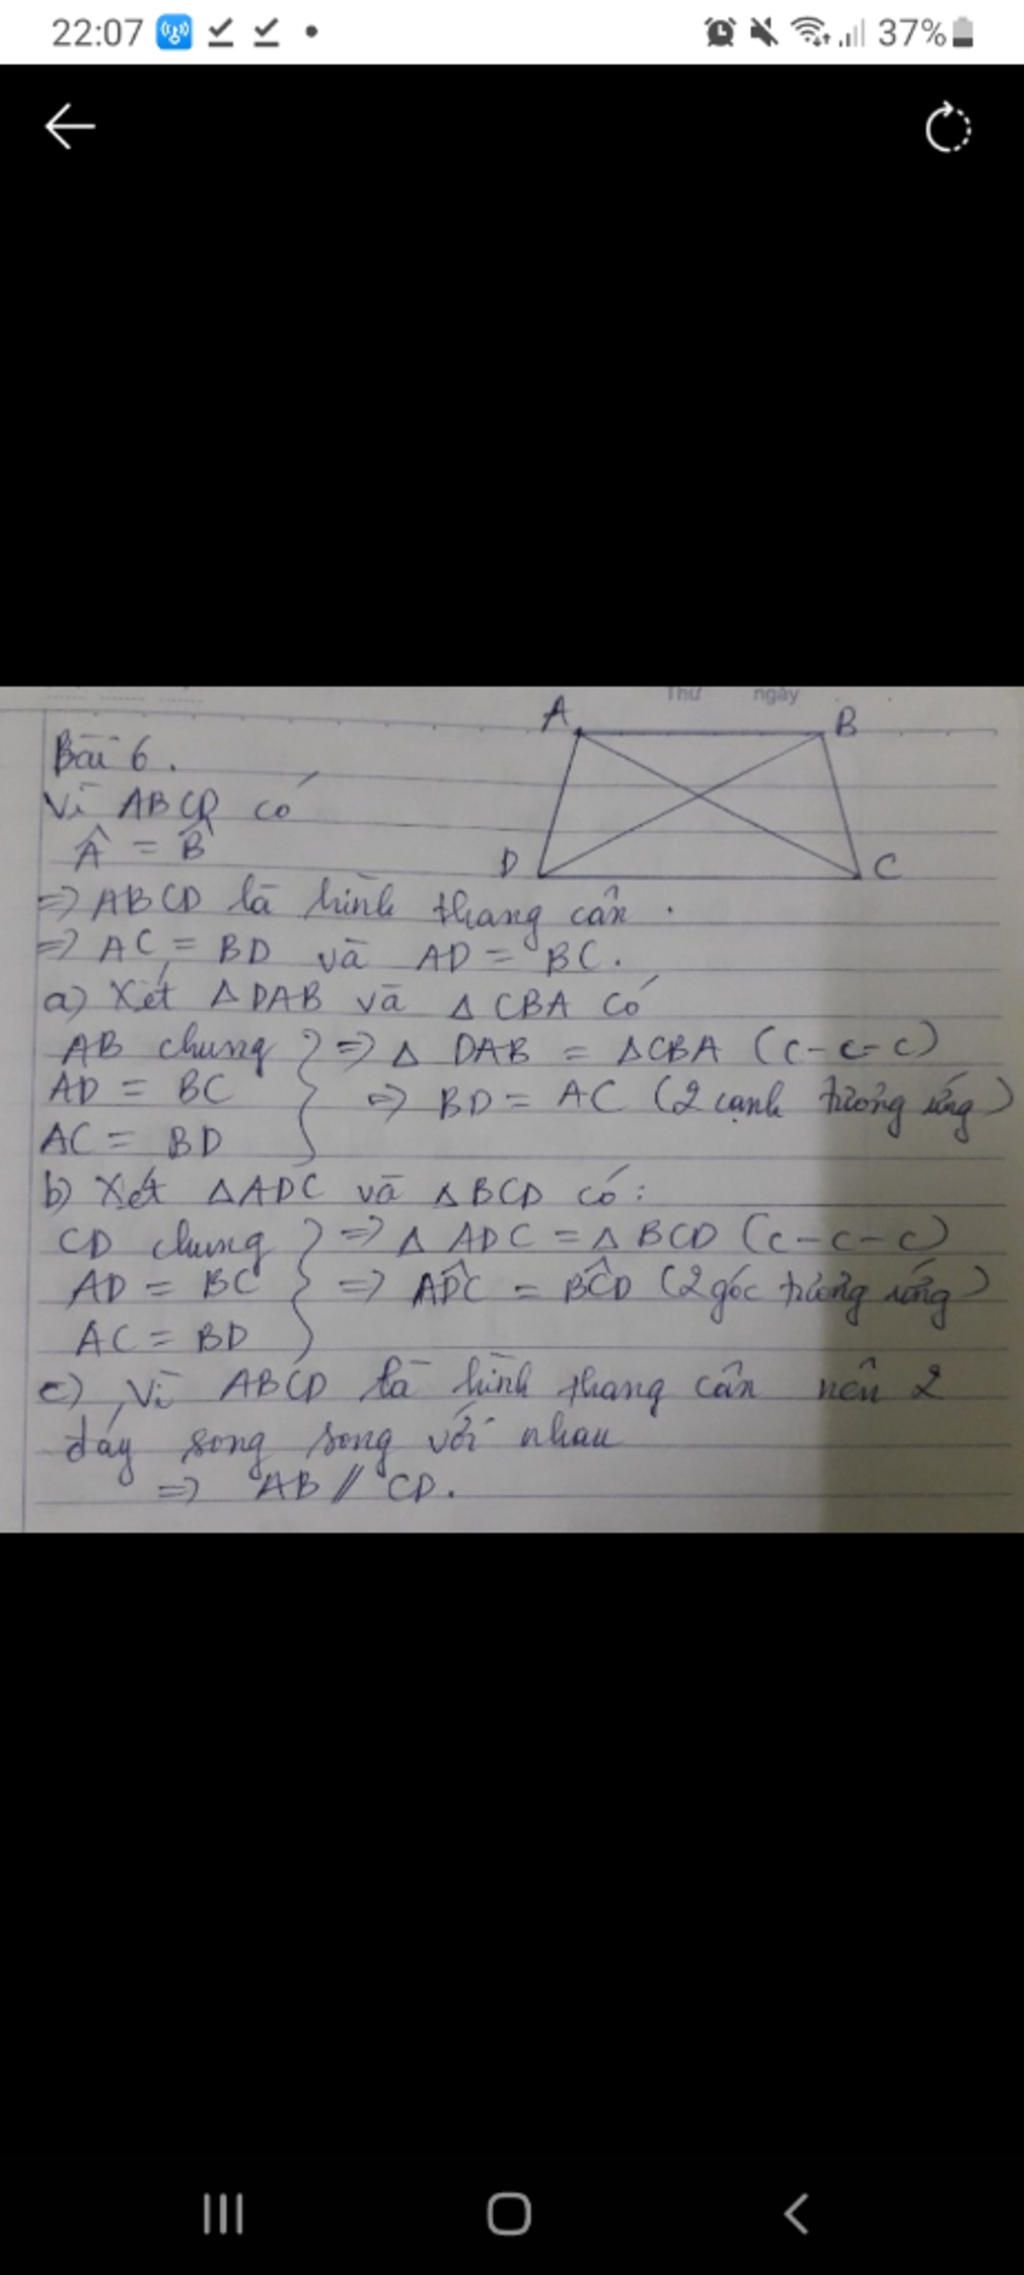 22:07
37%
Thứ ngày
A
B
D
C
Bài 6.
Vì ABCD có
Â = B̂
=> ABCD là hình thang cân.
=> AC = BD và AD = BC.
a) Xét △DAB và △CBA có
AB chung } => △DAB = △CBA (c-c-c)
AD = BC => BD = AC (2 cạnh tương ứng)
AC = BD
b) Xét △ADC và △BCD có:
CD chung } => △ADC = △BCD (c-c-c)
AD = BC => AD̂C = BĈD (2 góc tương ứng)
AC = BD
c) Vì ABCD là hình thang cân nên 2
đáy song song với nhau
=> AB // CD.